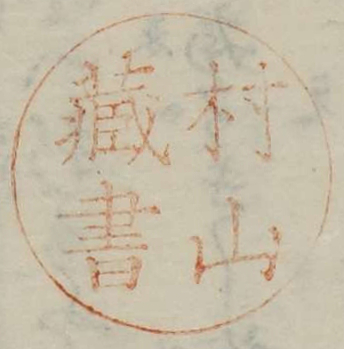 村山
藏書